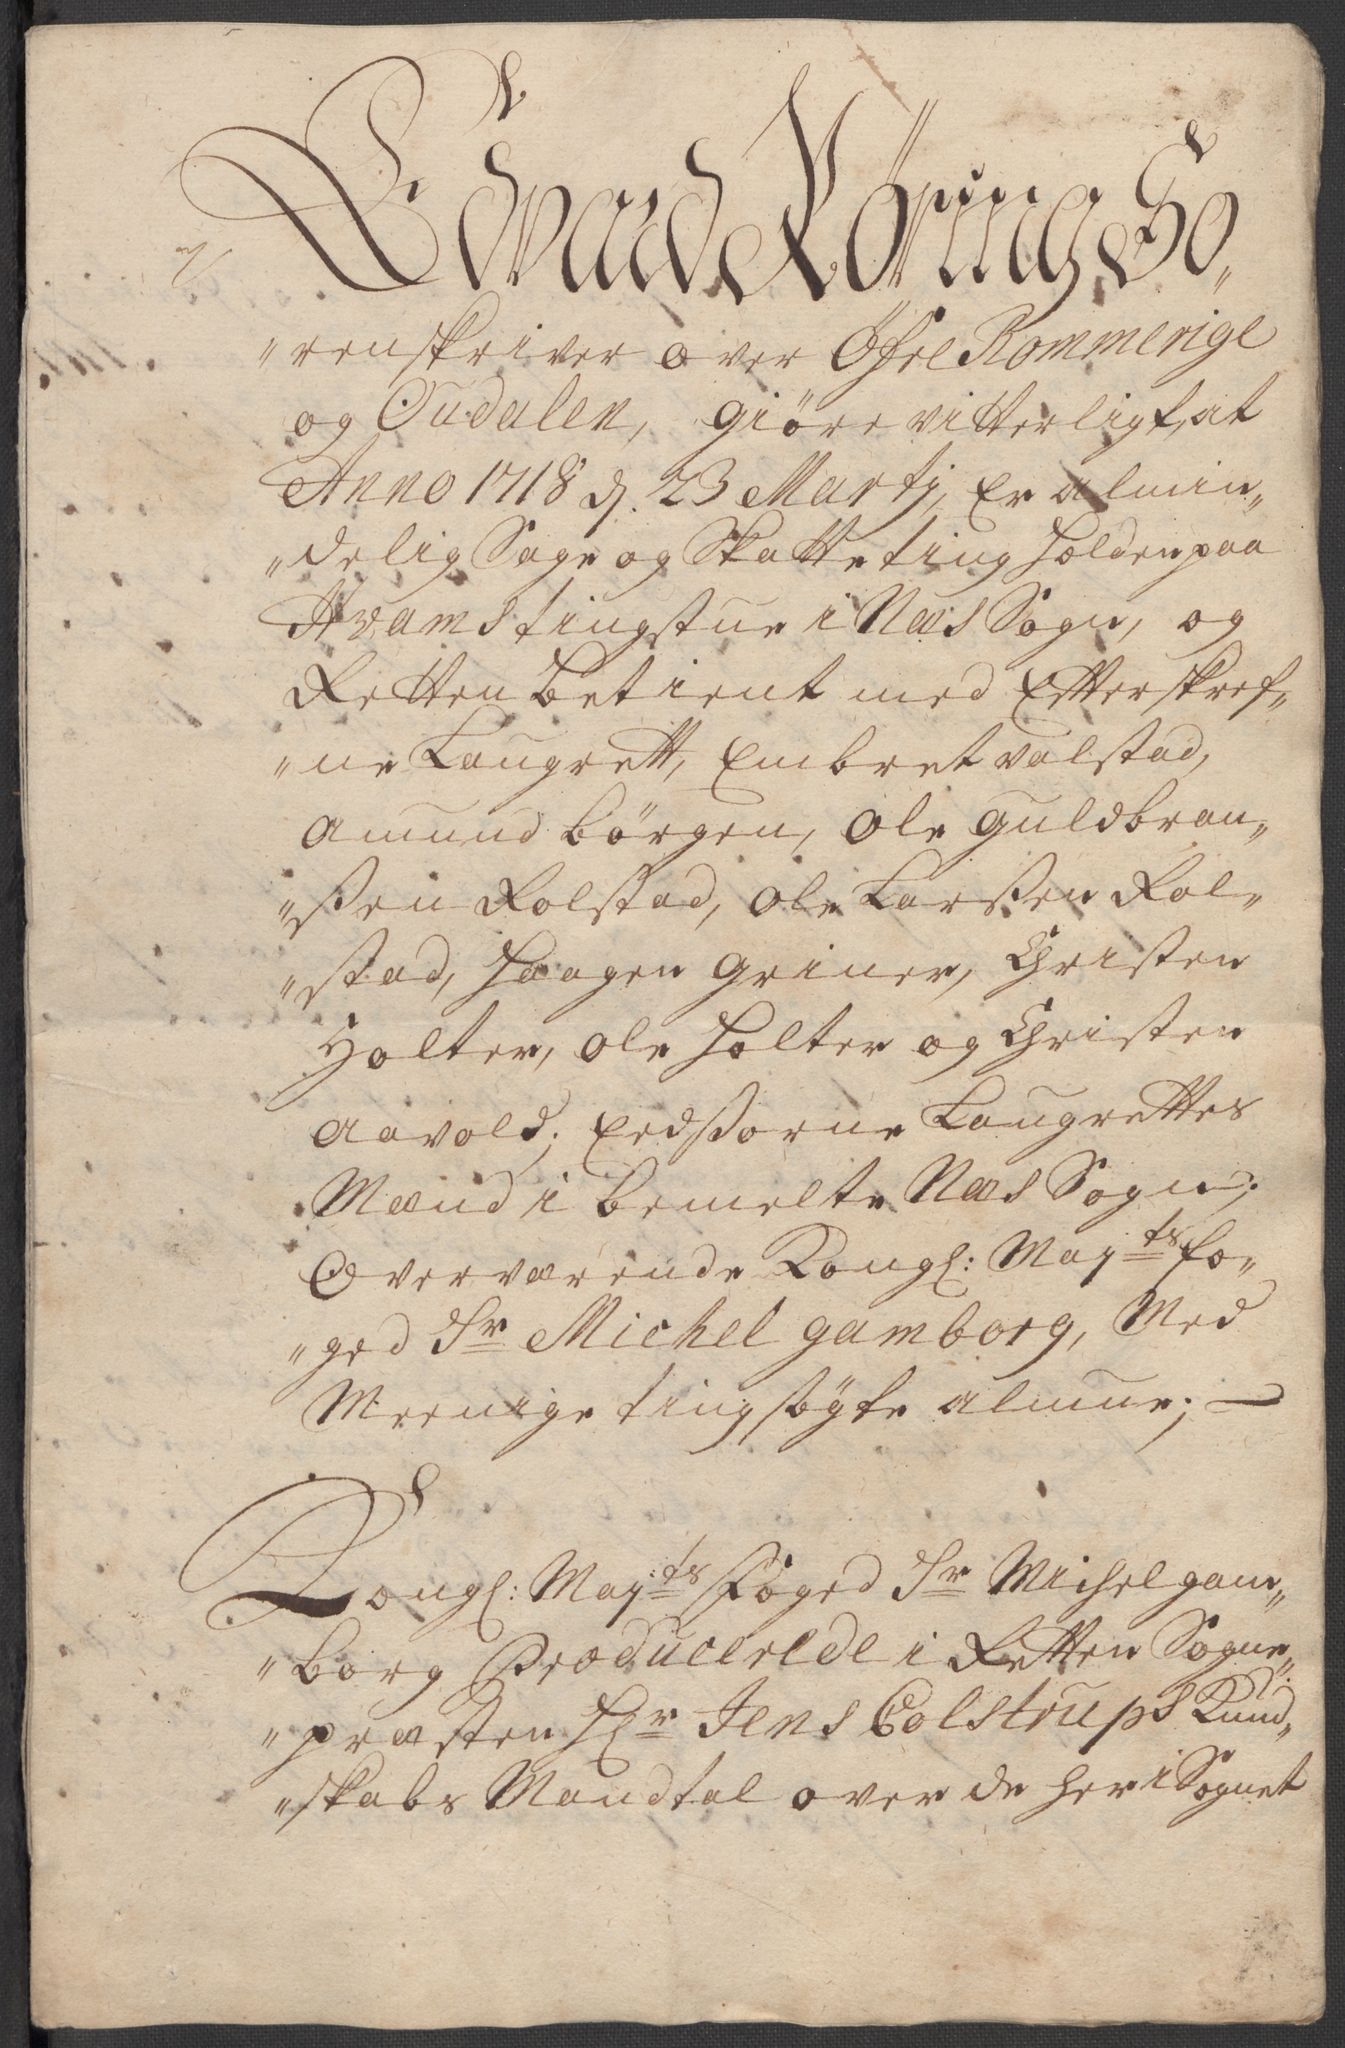 Edvard Röring So„
„renskriver over Öfre Rommerige
og Oudalen, giöre vitterligt, at
Anno 1718 d. 23 Martj, Er almin„
„delig Sage og Skatteting holden paa
Hvams tingstue i Næs Sogn, og
Retten betient med Efterskref„
„ne Laugrett, Embret valstad,
Amund börgen, Ole guldbran„
„ßen Rolstad, Ole Larßen Rol„
„stad, Haagen Griner, Christen
Holter, Ole Holter og Christen
Aavold; Eedßorne Laugrettes
Mænd i bemelte Næs Sogn;
Overværende Kongl: May:ts fo„
„ged Sr Michel gamborg, Med
Meenige tingsögte almue;
Kongl: May:ts Foged Sr Michel gam„
„borg Producerede i Retten Sogne„
„præsten Hr Jens Colstrups Kund„
„skabs Mandtal over de her i Sognet